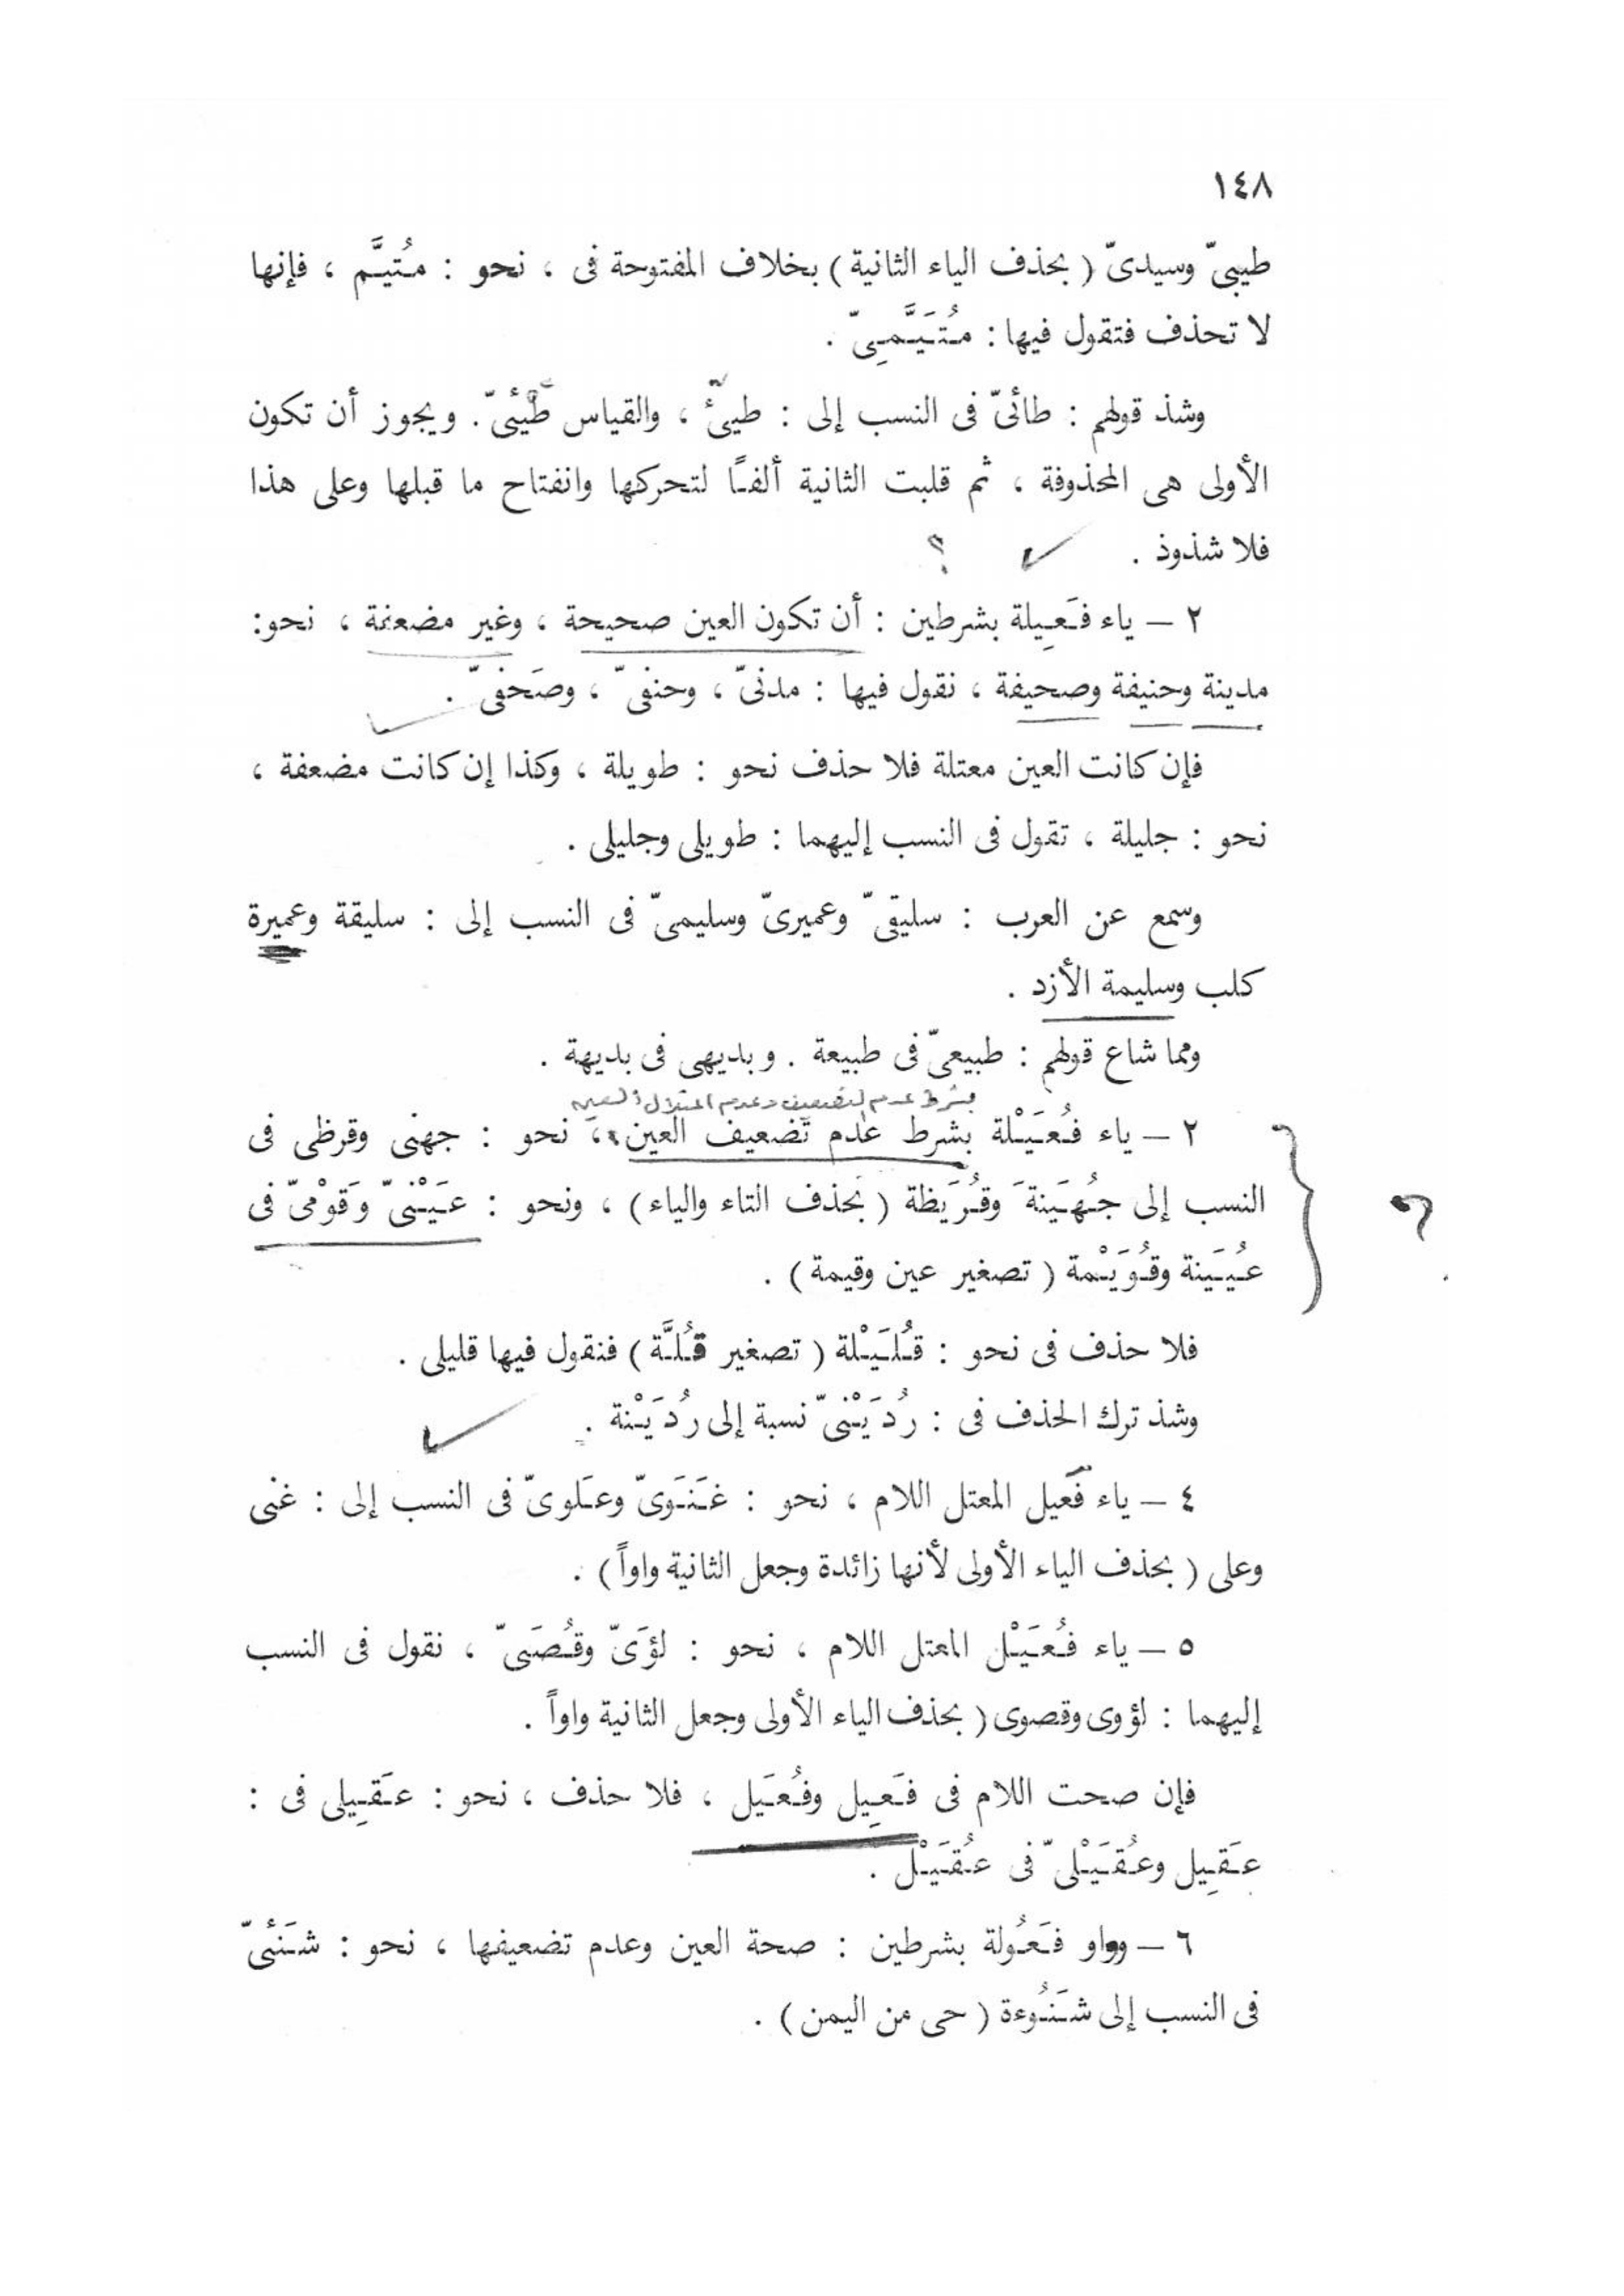 ١٤٨
طيبىّ وسيدىّ ( بحذف الياء الثانية ) بخلاف المفتوحة فى ، نحو : مُتيَّم ، فإنها
لا تحذف فتقول فيها : مُتَيَّمِىّ .
وشذ قولهم : طائىّ فى النسب إلى : طيئ ، والقياس طَيْئىّ . ويجوز أن تكون
الأولى هى المحذوفة ، ثم قلبت الثانية ألفًا لتحركها وانفتاح ما قبلها وعلى هذا
فلا شذوذ . ؟
٢ – ياء فَعِيلة بشرطين : أن تكون العين صحيحة ، وغير مضعفة ، نحو:
مدينة وحنيفة وصحيفة ، نقول فيها : مدنىّ ، وحنفىّ ، وصَحفىّ .
فإن كانت العين معتلة فلا حذف نحو : طويلة ، وكذا إن كانت مضعفة ،
نحو : جليلة ، تقول فى النسب إليهما : طويلى وجليلى .
وسمع عن العرب : سليقىّ وعميرىّ وسليمىّ فى النسب إلى : سليقة وعميرة
كلب وسليمة الأزد .
ومما شاع قولهم : طبيعىّ فى طبيعة . وبديهى فى بديهة .
بشرط عدم التضعيف وعدم اعتلال العين
٢ – ياء فُعَيْلة بشرط عدم تضعيف العين ، نحو : جهنى وقرظى فى
النسب إلى جُهَينة وقُرَيظة ( بحذف التاء والياء ) ، ونحو : عَيْنىّ وَقَوْمىّ فى
عُيَينة وقُوَيْمة ( تصغير عين وقيمة ) .
فلا حذف فى نحو : قُلَيْلة ( تصغير قُلَّة ) فنقول فيها قليلى .
وشذ ترك الحذف فى : رُدَيْنىّ نسبة إلى رُدَيْنة .
٤ – ياء فَعيل المعتل اللام ، نحو : غَنَوىّ وعَلوىّ فى النسب إلى : غنى
وعلى ( بحذف الياء الأولى لأنها زائدة وجعل الثانية واواً ) .
٥ – ياء فُعَيْل المعتل اللام ، نحو : لؤَىّ وقُصَىّ ، نقول فى النسب
إليهما : لؤوى وقصوى ( بحذف الياء الأولى وجعل الثانية واواً .
فإن صحت اللام فى فَعِيل وفُعَيل ، فلا حذف ، نحو : عَقِيلى فى :
عَقِيل وعُقَيْلىّ فى عُقَيْل .
٦ – وواو فَعُولة بشرطين : صحة العين وعدم تضعيفها ، نحو : شَنَئىّ
فى النسب إلى شَنُوءة ( حى من اليمن ) .